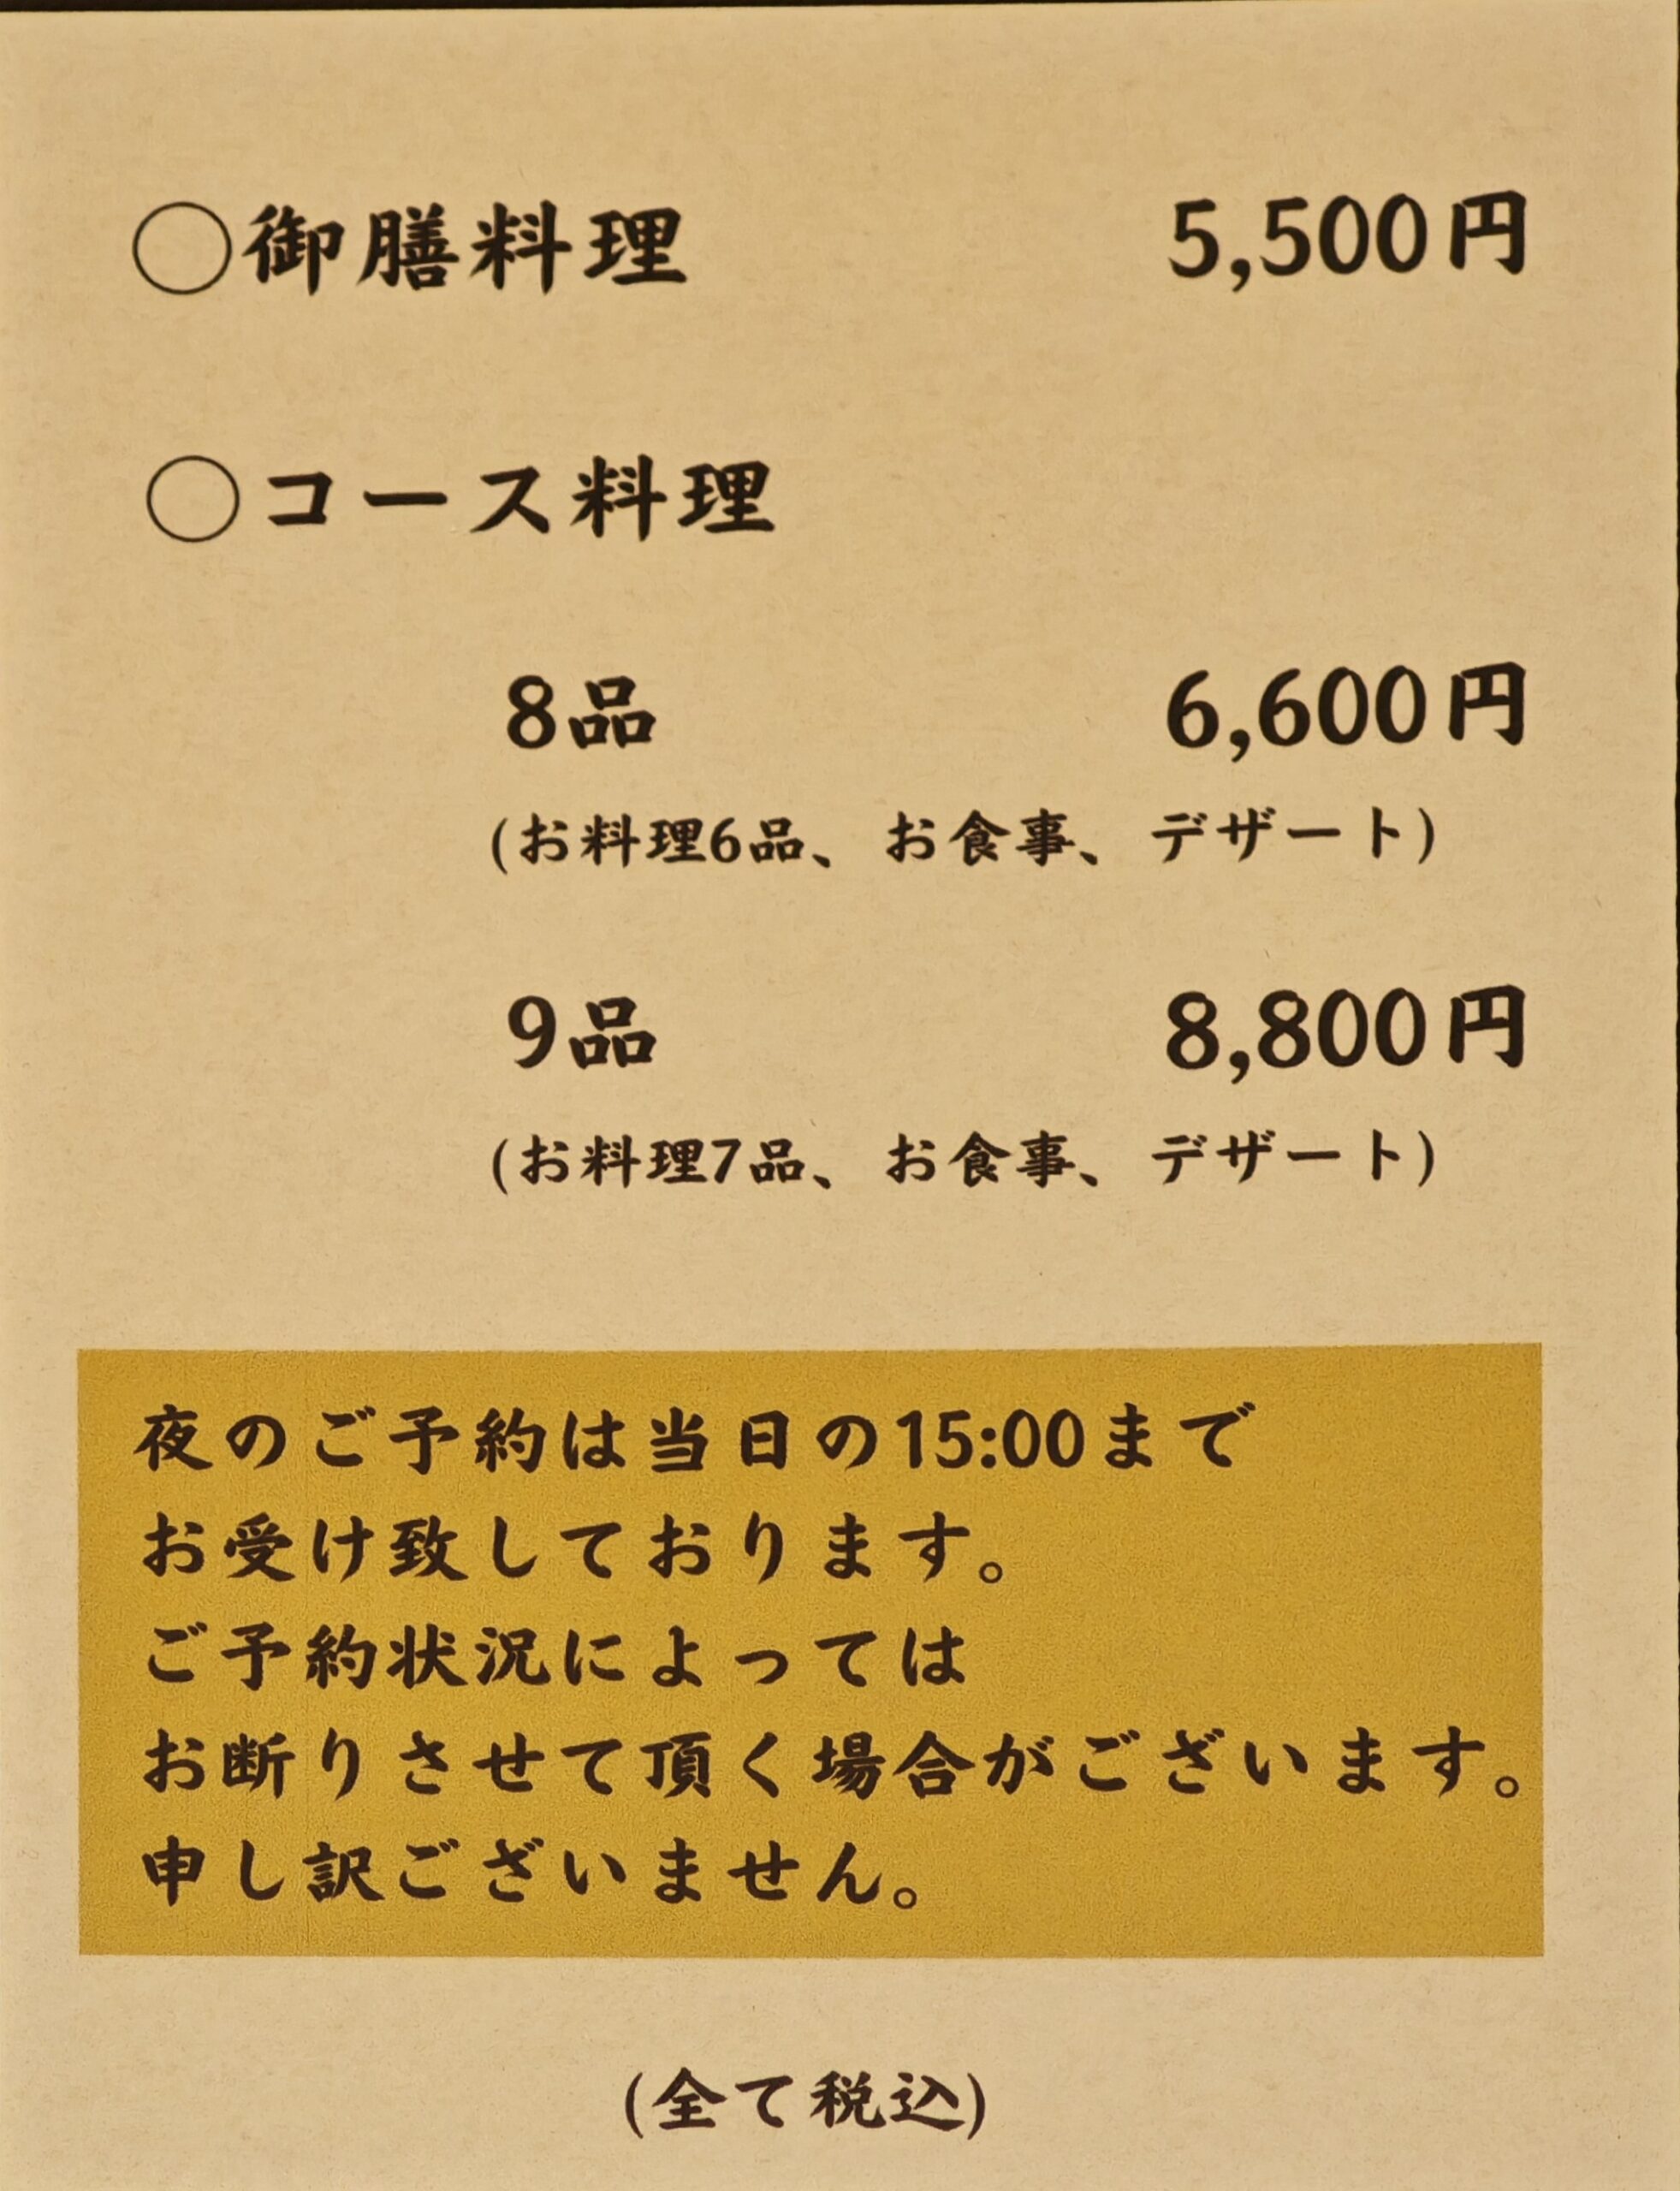 ○御膳料理 5,500円
○コース料理
8品 6,600円
(お料理6品、お食事、デザート)
9品 8,800円
(お料理7品、お食事、デザート)
夜のご予約は当日の15:00まで
お受け致しております。
ご予約状況によっては
お断りさせて頂く場合がございます。
申し訳ございません。
(全て税込)